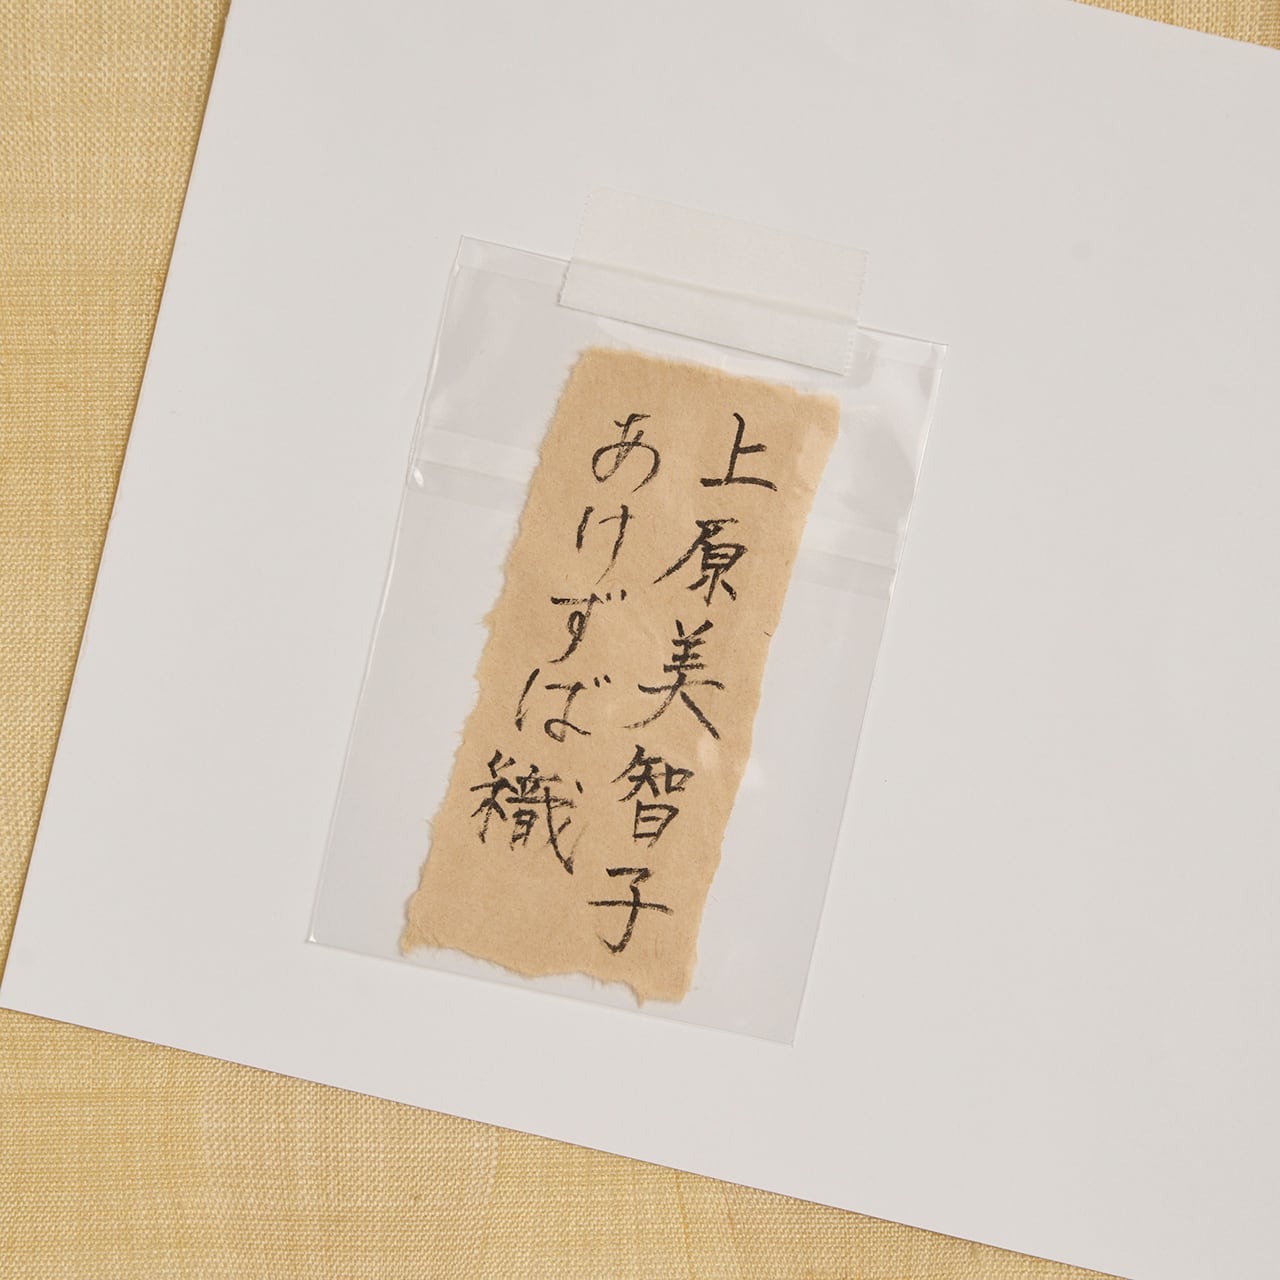 上原美智子
あけずば織